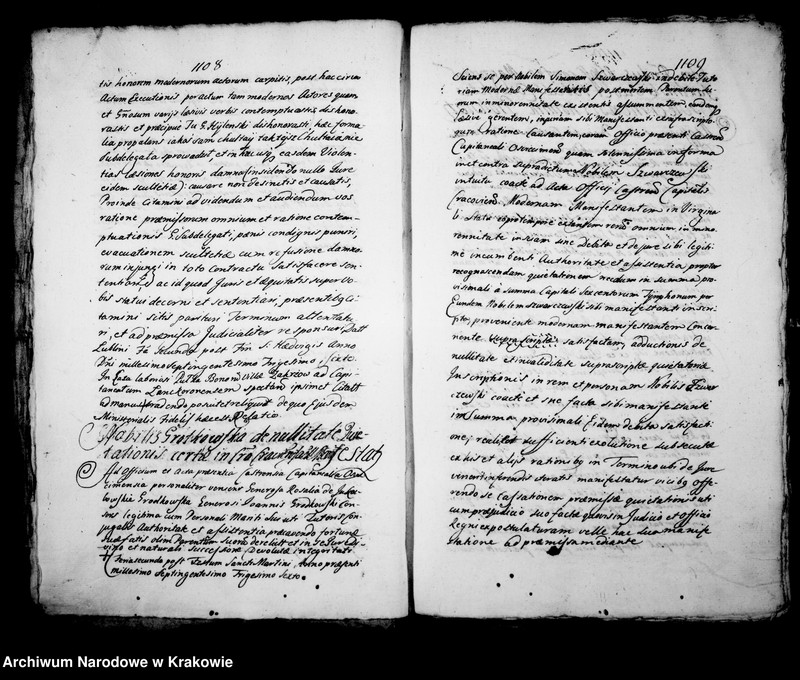 1108
tis honorem modernorum actorum carpitis, post hac circa
Actum Executionis peractum tam modernos Actores quam
et Gnosum varijs lasivis verbis contemptuastis, dishono-
rastis et præcipue Ju G. Kijlenski dishonorasti, hæc forma
lia propalans
Subdelegata sprovadzil et in hucusq easdem Violen-
tias læsiones honoris damna insidendo nullo Jure
eidem scultetiæ causare non desinetis et causatis,
Proinde Citamini ad videndum et audiendum vos
ratione præmissorum omnium et ratione contem-
ptuationis G. Subdelegati, pænis condignis puniri,
evacuationem scultetiæ cum refusione damno-
rum injungi in toto Contractu satisfacere sen-
tentiari ac id quod Juris et æquitatis super vo-
bis statui decerni et sententiari, præsenti Ci-
tamini sitis parituri Terminum attentatu
ri, et ad præmissa Judicialiter responsuri Datt
Lublini Fa Secunda post Fm S. Hedvigis Anno
Dni millesimo septingentesimo Trigesimo, sexto
ad Capi-
taneatum Lanckronensem spectan insimet Citatt
ad manus tradendo posuit reliquit de quo Ejusdem
Ministerialis Fidelis hæc est Relatio.
Nobilis Grotkowska de nullitate Qui-
tationis certæ infra
Ad Officium et Acta præsentia Castrensia Capitanealia Osvie
cimensia personaliter veniens Generosa Rosalia de
Grodkowska Generosi Joannis Grodkowski Con-
sors legitima cum Personali Mariti sui uti Tutoris Con-
jugalis Authoritate et assistentia
suæ satis olim Parentum suorum derelictt et in se Jure Di-
vino et naturali successore devolutæ integritati
Feria secunda post Festum Sancti Martini, Anno præsenti
millesimo Septingentesimo Trigesimo Sexto.
1109
Sciens se, per Nobilem Simonem Szwarczewski indebite Tuto
riam Modernæ Manifestantis post mortem Parentum su-
orum in minorennitate existentis assumentem, eandem
lasive gerentem, injuriam sibi Manifestanti ex infrascripto-
rum ratione Causantem, coram Officio præsenti Castren
Capitaneali Osviecimen quam solennissima in forma
in et contra supradictum Nobilem Szwarczewski
intuitu coactæ ad Acta Officij Castren Capitalis
Cracovien Modernam Manifestantem in Virgina
li Statu eoqe tempore existentem rerum omnium in mino-
rennitate insciam sine debita et de jure sibi legiti
me incumbenti Authoritate et assistentia propter
recognoscendam quietationem nedum in summa, pro-
visionali a summa Capitali Sexcentorum Tymphonum per
Eundem Nobilem Szwarczewski sibi manifestanti inscri-
pta, proveniente modernam manifestantem Concer-
nente suprascripta satisfactam, adductionis de
nullitate et invaliditate suprascriptæ quietatoriæ
Inscriptionis in rem et personam Nobilis Szwar
czewski coactæ et sne facta sibi manifestanti
in Summa provisionali Eidem debita satisfacti-
one, realiter sufficienti exolutione subsecuta
ex his et alijs rationibus in Termino ubi de Jure
venerit inferendis iteratis manifestatur vicibus offe-
rendo se Cassationem præmissæ quietationis uti
cum præjudicio suo factæ quovis in Judicio et officio
Regni expostulaturam velle hac sua manife
statione ad præmissa mediante
Archiwum Narodowe w Krakowie